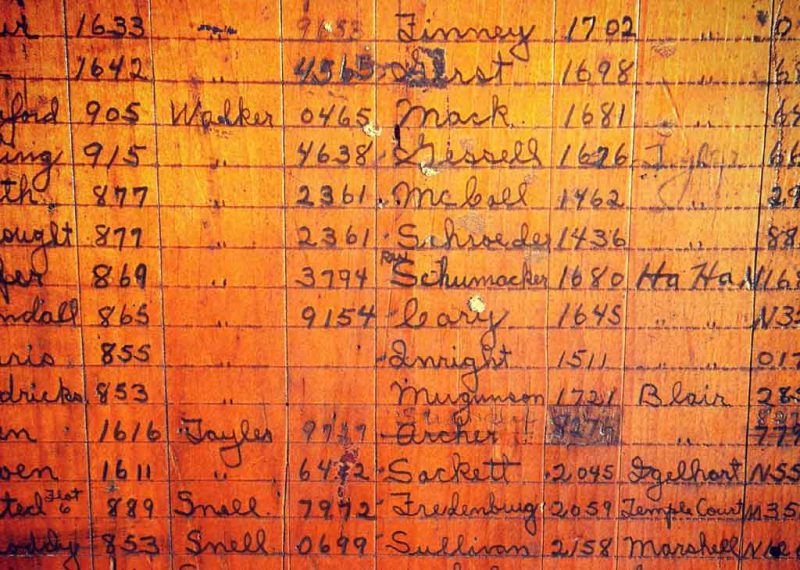 1633 " Finney 1702 "
1642 " 4565 Gerst 1698 "
ford 905 Walker 0465 Mack 1681 "
ing 915 " 4638 Gessell 1676
th 877 " 2361 McCall 1462
ought 877 " 2361 Schroeder 1436
fer 869 " 3794 Schumacker 1680 Ha Ha N168
ndall 865 " 9154 Cary 1645 " " N33
ris 855 " Inright 1511 " " 017
dricks 853 " Mugunson 1721 Blair 283
en 1616 Tayles Archer "
wen 1611 " Sackett 2045 Igelhart N55
ted Flat 6 889 Snell 7972 Fredenburg 2059 Temper Court
oddy 853 Snell 0699 Sullivan 2158 Marshell